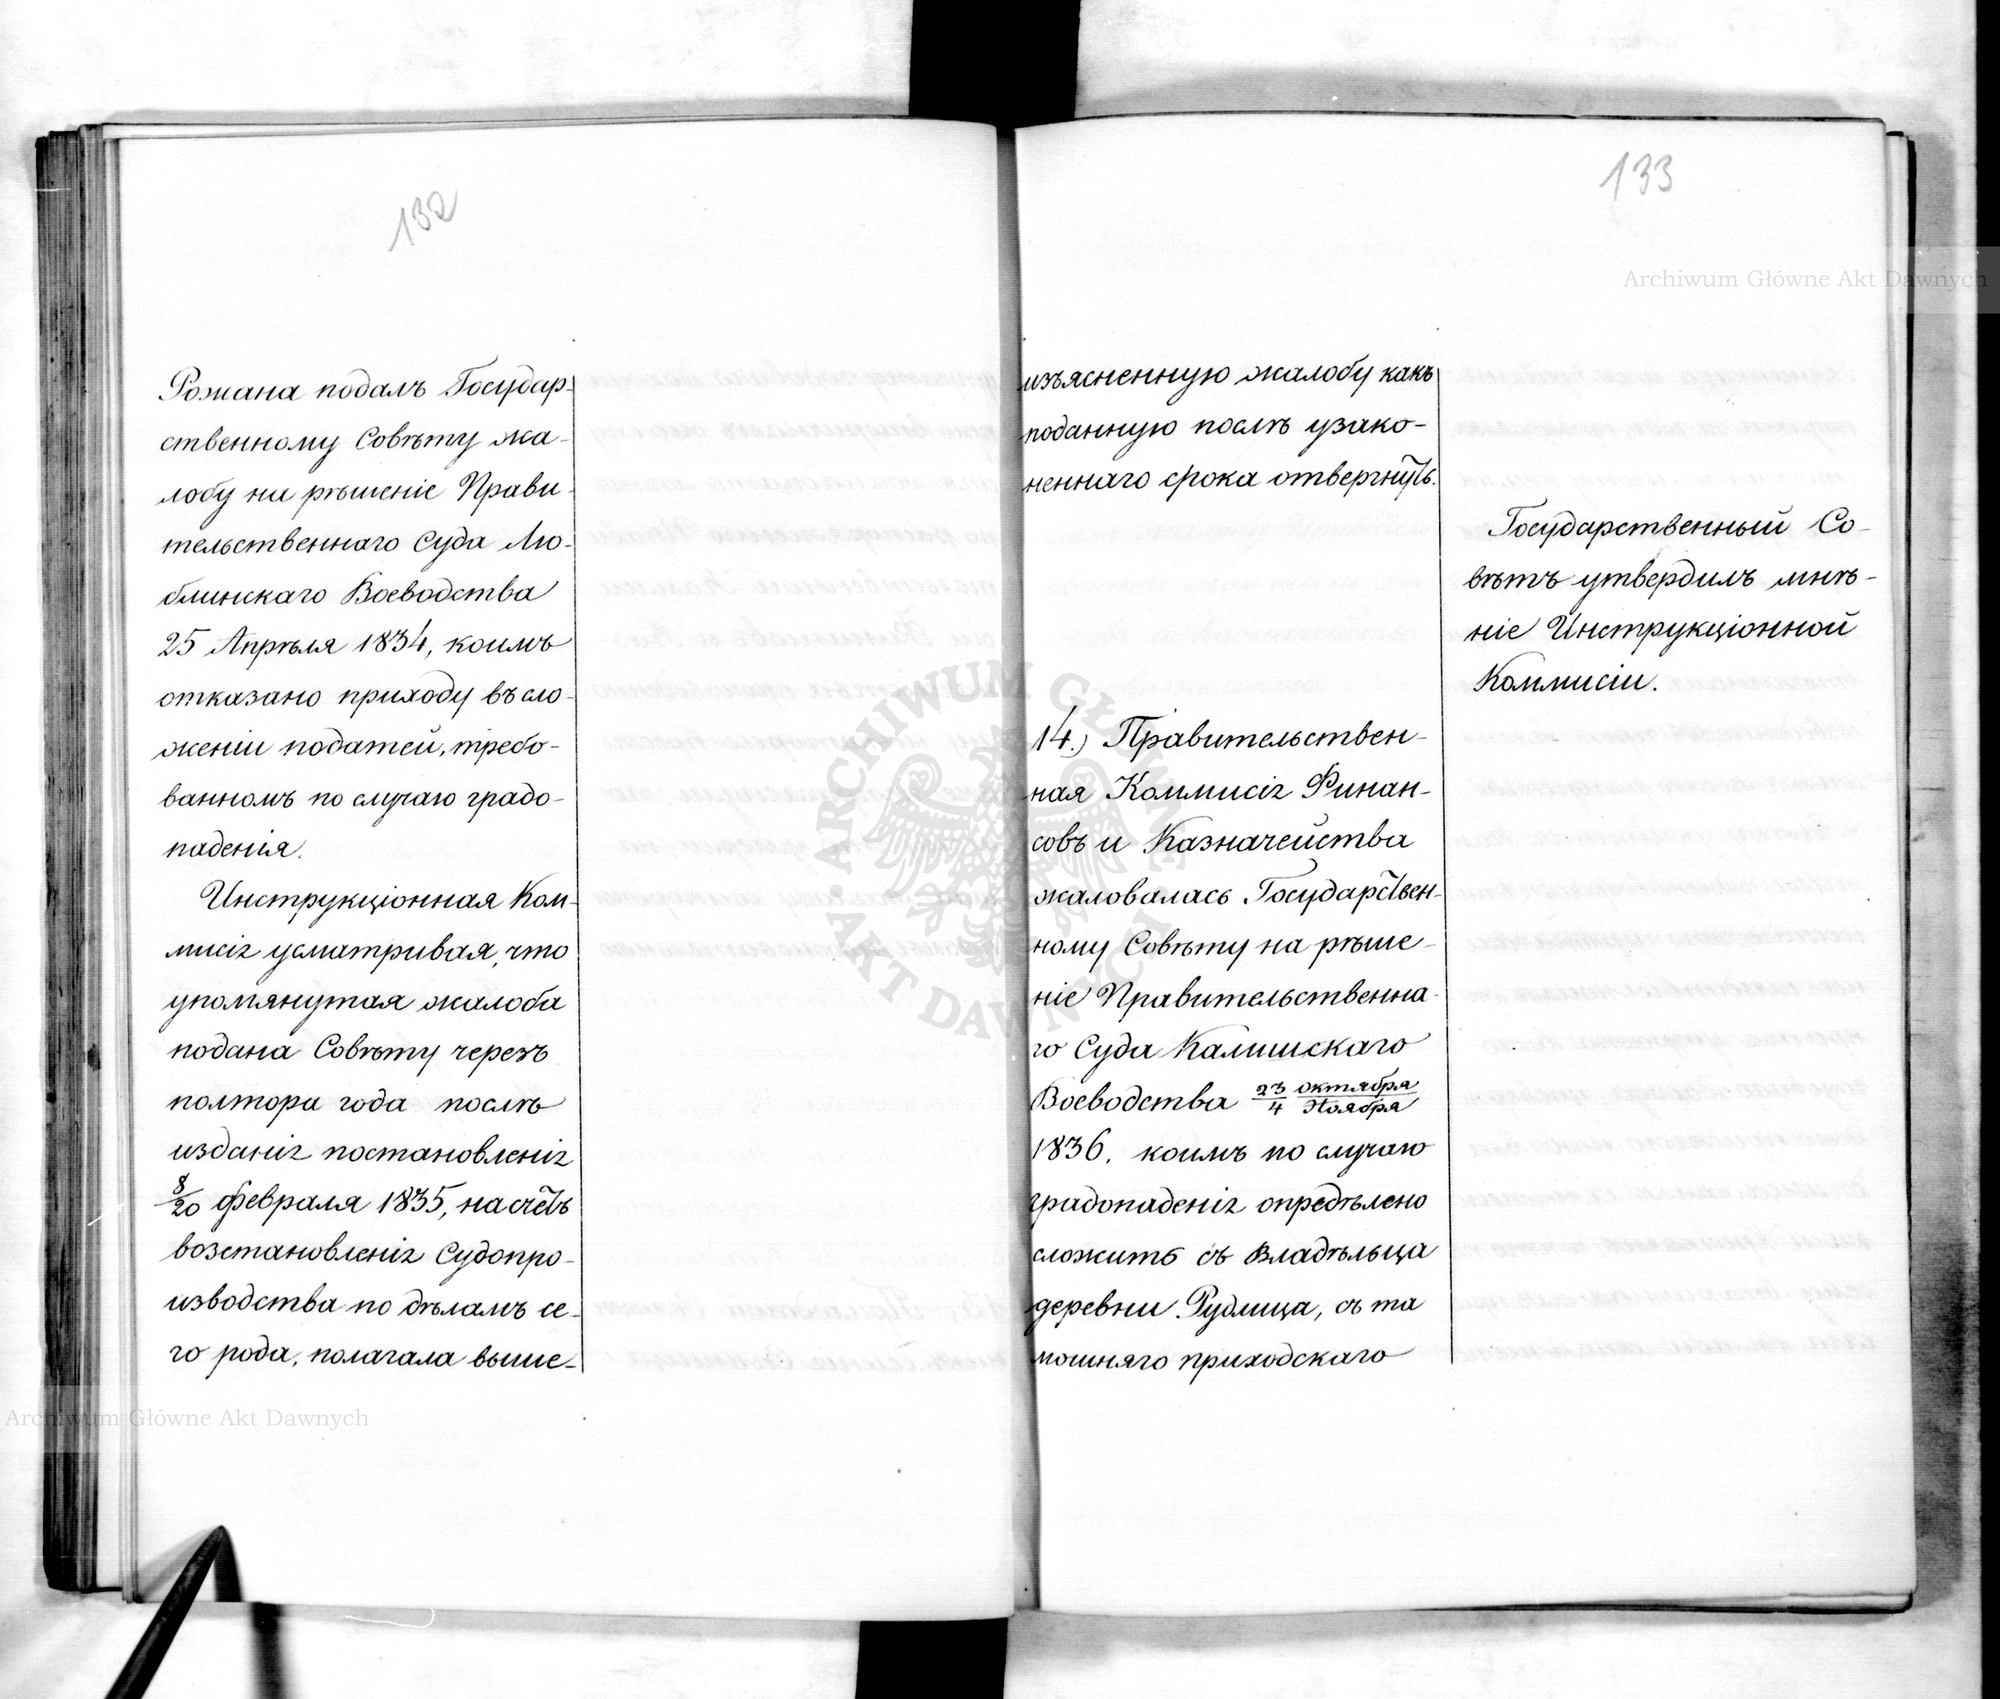 132
Рожана подалъ Государ-
ственному Совѣту жа-
лобу на рѣшеніе Прави-
тельственнаго Суда Лю-
блинскаго Воеводства
25 Апрѣля 1834, коимъ
отказано приходу въ сло-
женіи податей, требо-
ванномъ по случаю градо-
паденія.
Инструкціонная Ком-
мисія усматривая, что
упомянутая жалоба
подана Совѣту черезъ
полтора года послѣ
изданія постановленія
8/20 февраля 1835, на счетъ
возстановленія Судопро-
изводства по дѣламъ се-
го рода, полагала выше-
133
изъясненную жалобу какъ
поданную послѣ узако-
неннаго срока отвергнуть.
Государственный Со-
вѣтъ утвердилъ мнѣ-
ніе Инструкціонной
Коммисіи.
14.) Правительствен-
ная Коммисія Финан-
совъ и Казначейства
жаловалась Государствен-
ному Совѣту на рѣше-
ніе Правительственна-
го Суда Калишскаго
Воеводства 23/4 Октября/Ноября
1836, коимъ по случаю
градопаденія опредѣлено
сложить съ Владѣльца
деревни Рудлица, съ та
мошняго приходскаго
Archiwum Główne Akt Dawnych
Archiwum Główne Akt Dawnych
ARCHIWUM GŁÓWNE AKT DAWNYCH